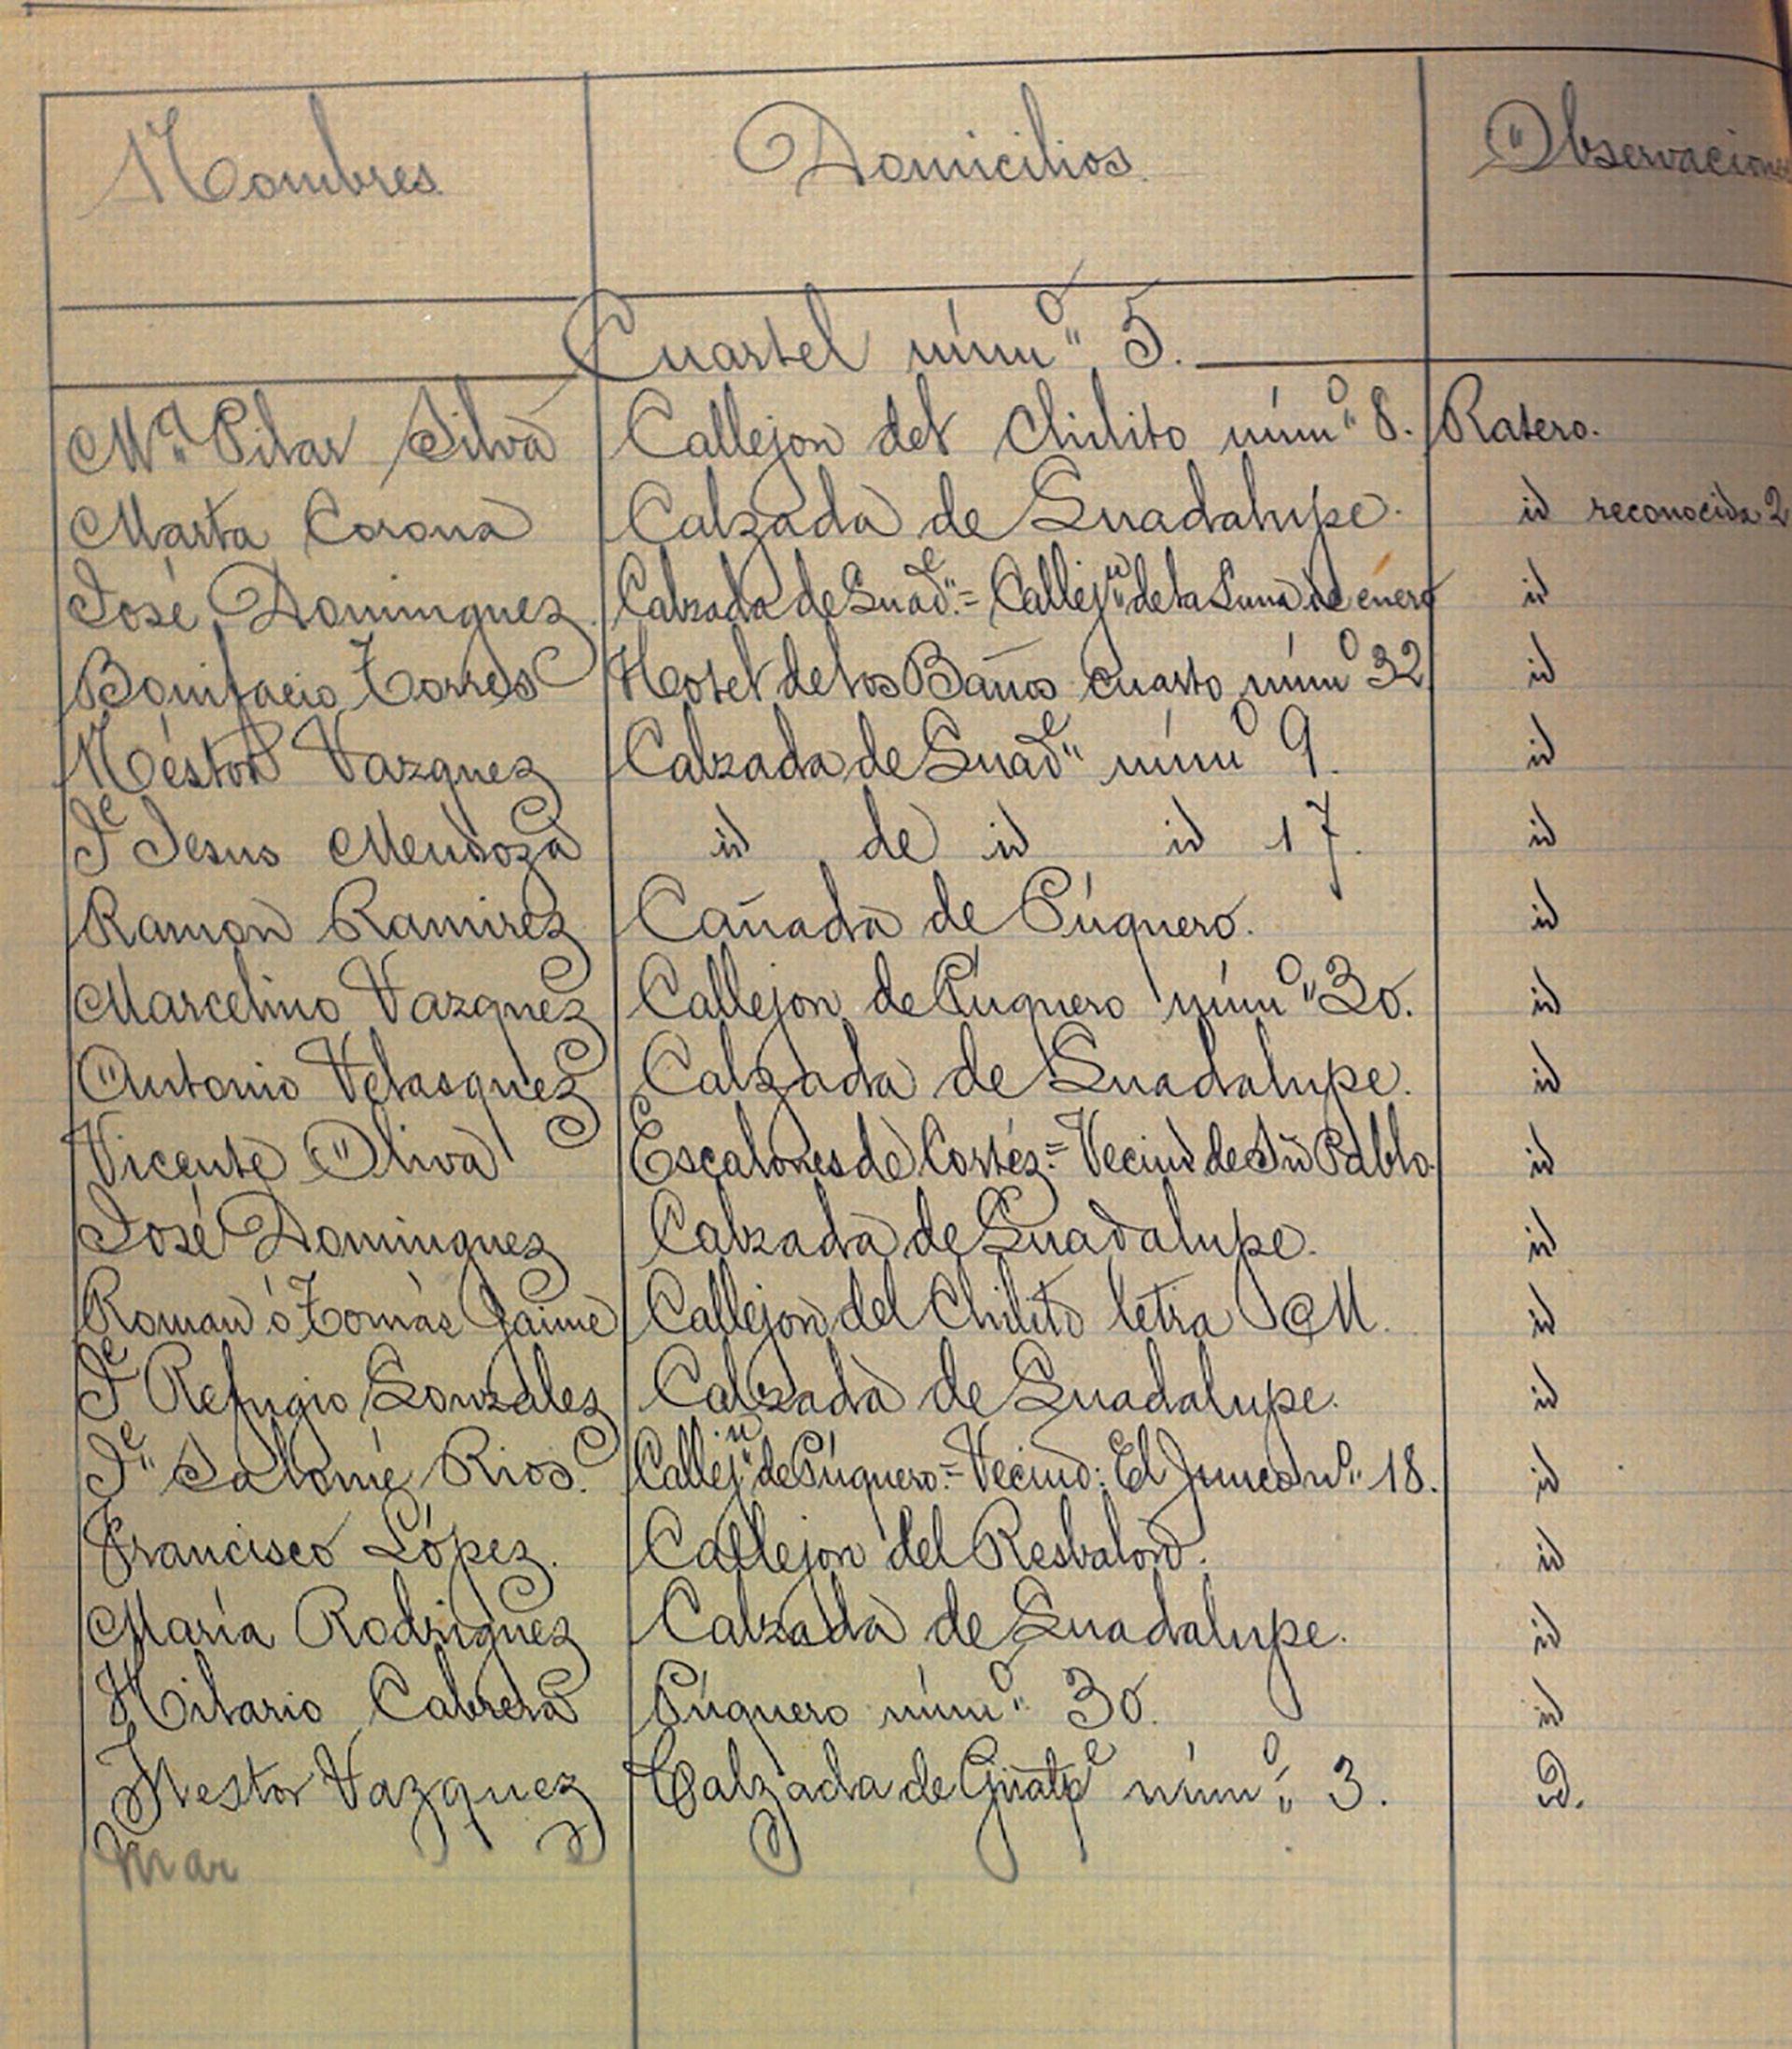 Nombres. Domicilios. Observacione
Cuartel núm.º 5.
M.ª Pilar Silva Callejon del Chilito núm.º 8. Ratero.
Marta Corona Calzada de Guadalupe. id reconocida 2
José Dominguez. Calzada de Guad.e = Callej.n de la Luna de enero id
Bonifacio Torres Hotel de los Baños cuarto núm.º 32 id
Néstor Vazquez Calzada de Guad.e núm.º 9. id
J.e Jesus Mendoza id de id id 17. id
Ramon Ramirez Cañada de Púquero. id
Marcelino Vazquez Callejon de Púquero núm.º 30. id
Antonio Velasquez Calzada de Guadalupe. id
Vicente Oliva Escalones de Cortéz = Vecind de Sn Pablo. id
José Dominguez Calzada de Guadalupe. id
Roman ó Tomás Jaime Callejon del Chilito letra M. id
J.e Refugio Gonzalez Calzada de Guadalupe. id
J.e Salomé Rios. Callej.n de Púquero. = Vecind: El Junco nº 18. id
Francisco López. Callejon del Resbalon. id
María Rodriguez Calzada de Guadalupe. id
Hilario Cabrera Púquero núm.º 30. id
Nestor Vazquez Calzada de núm.º 3. id.
Mar